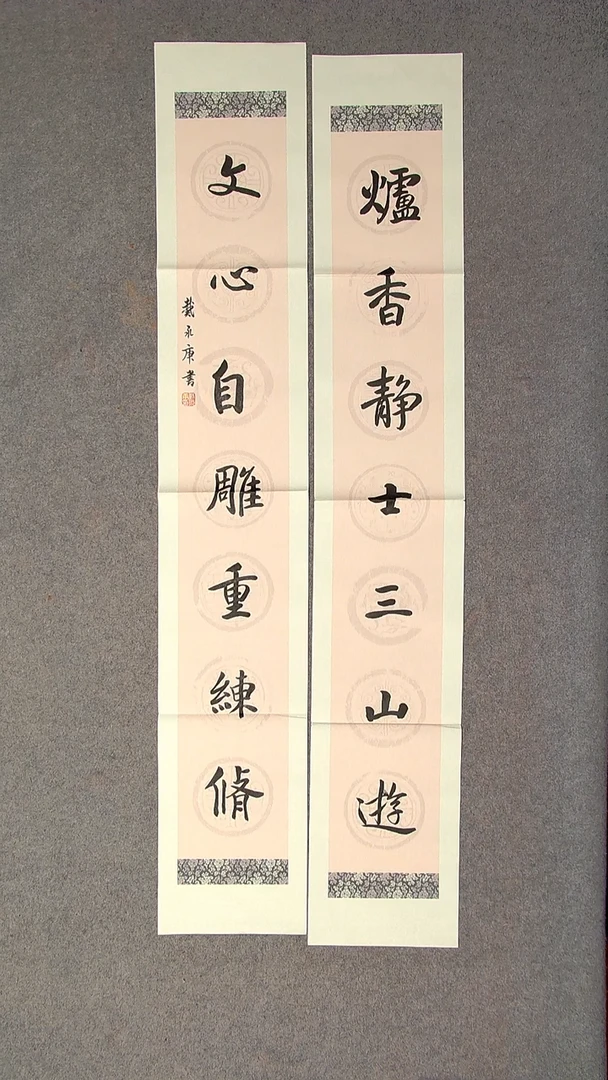 爐香静士三山遊
文心自雕重練脩
戴永庚書